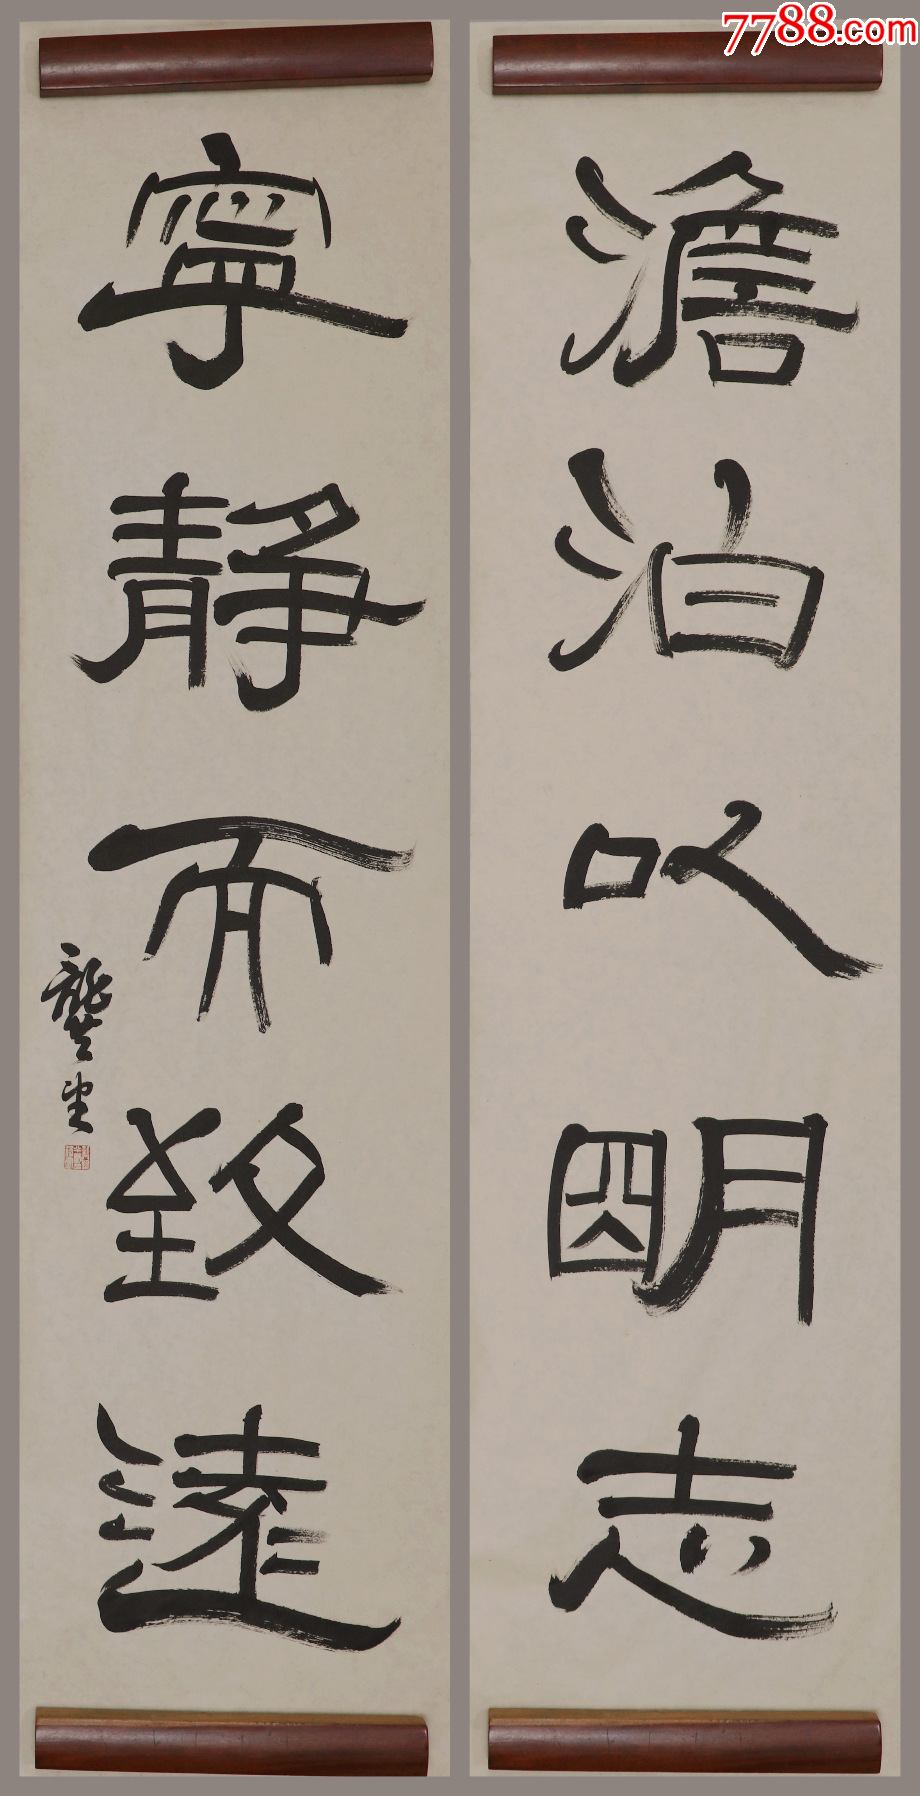 7788.com
澹泊以明志
寧靜而致遠
龔望